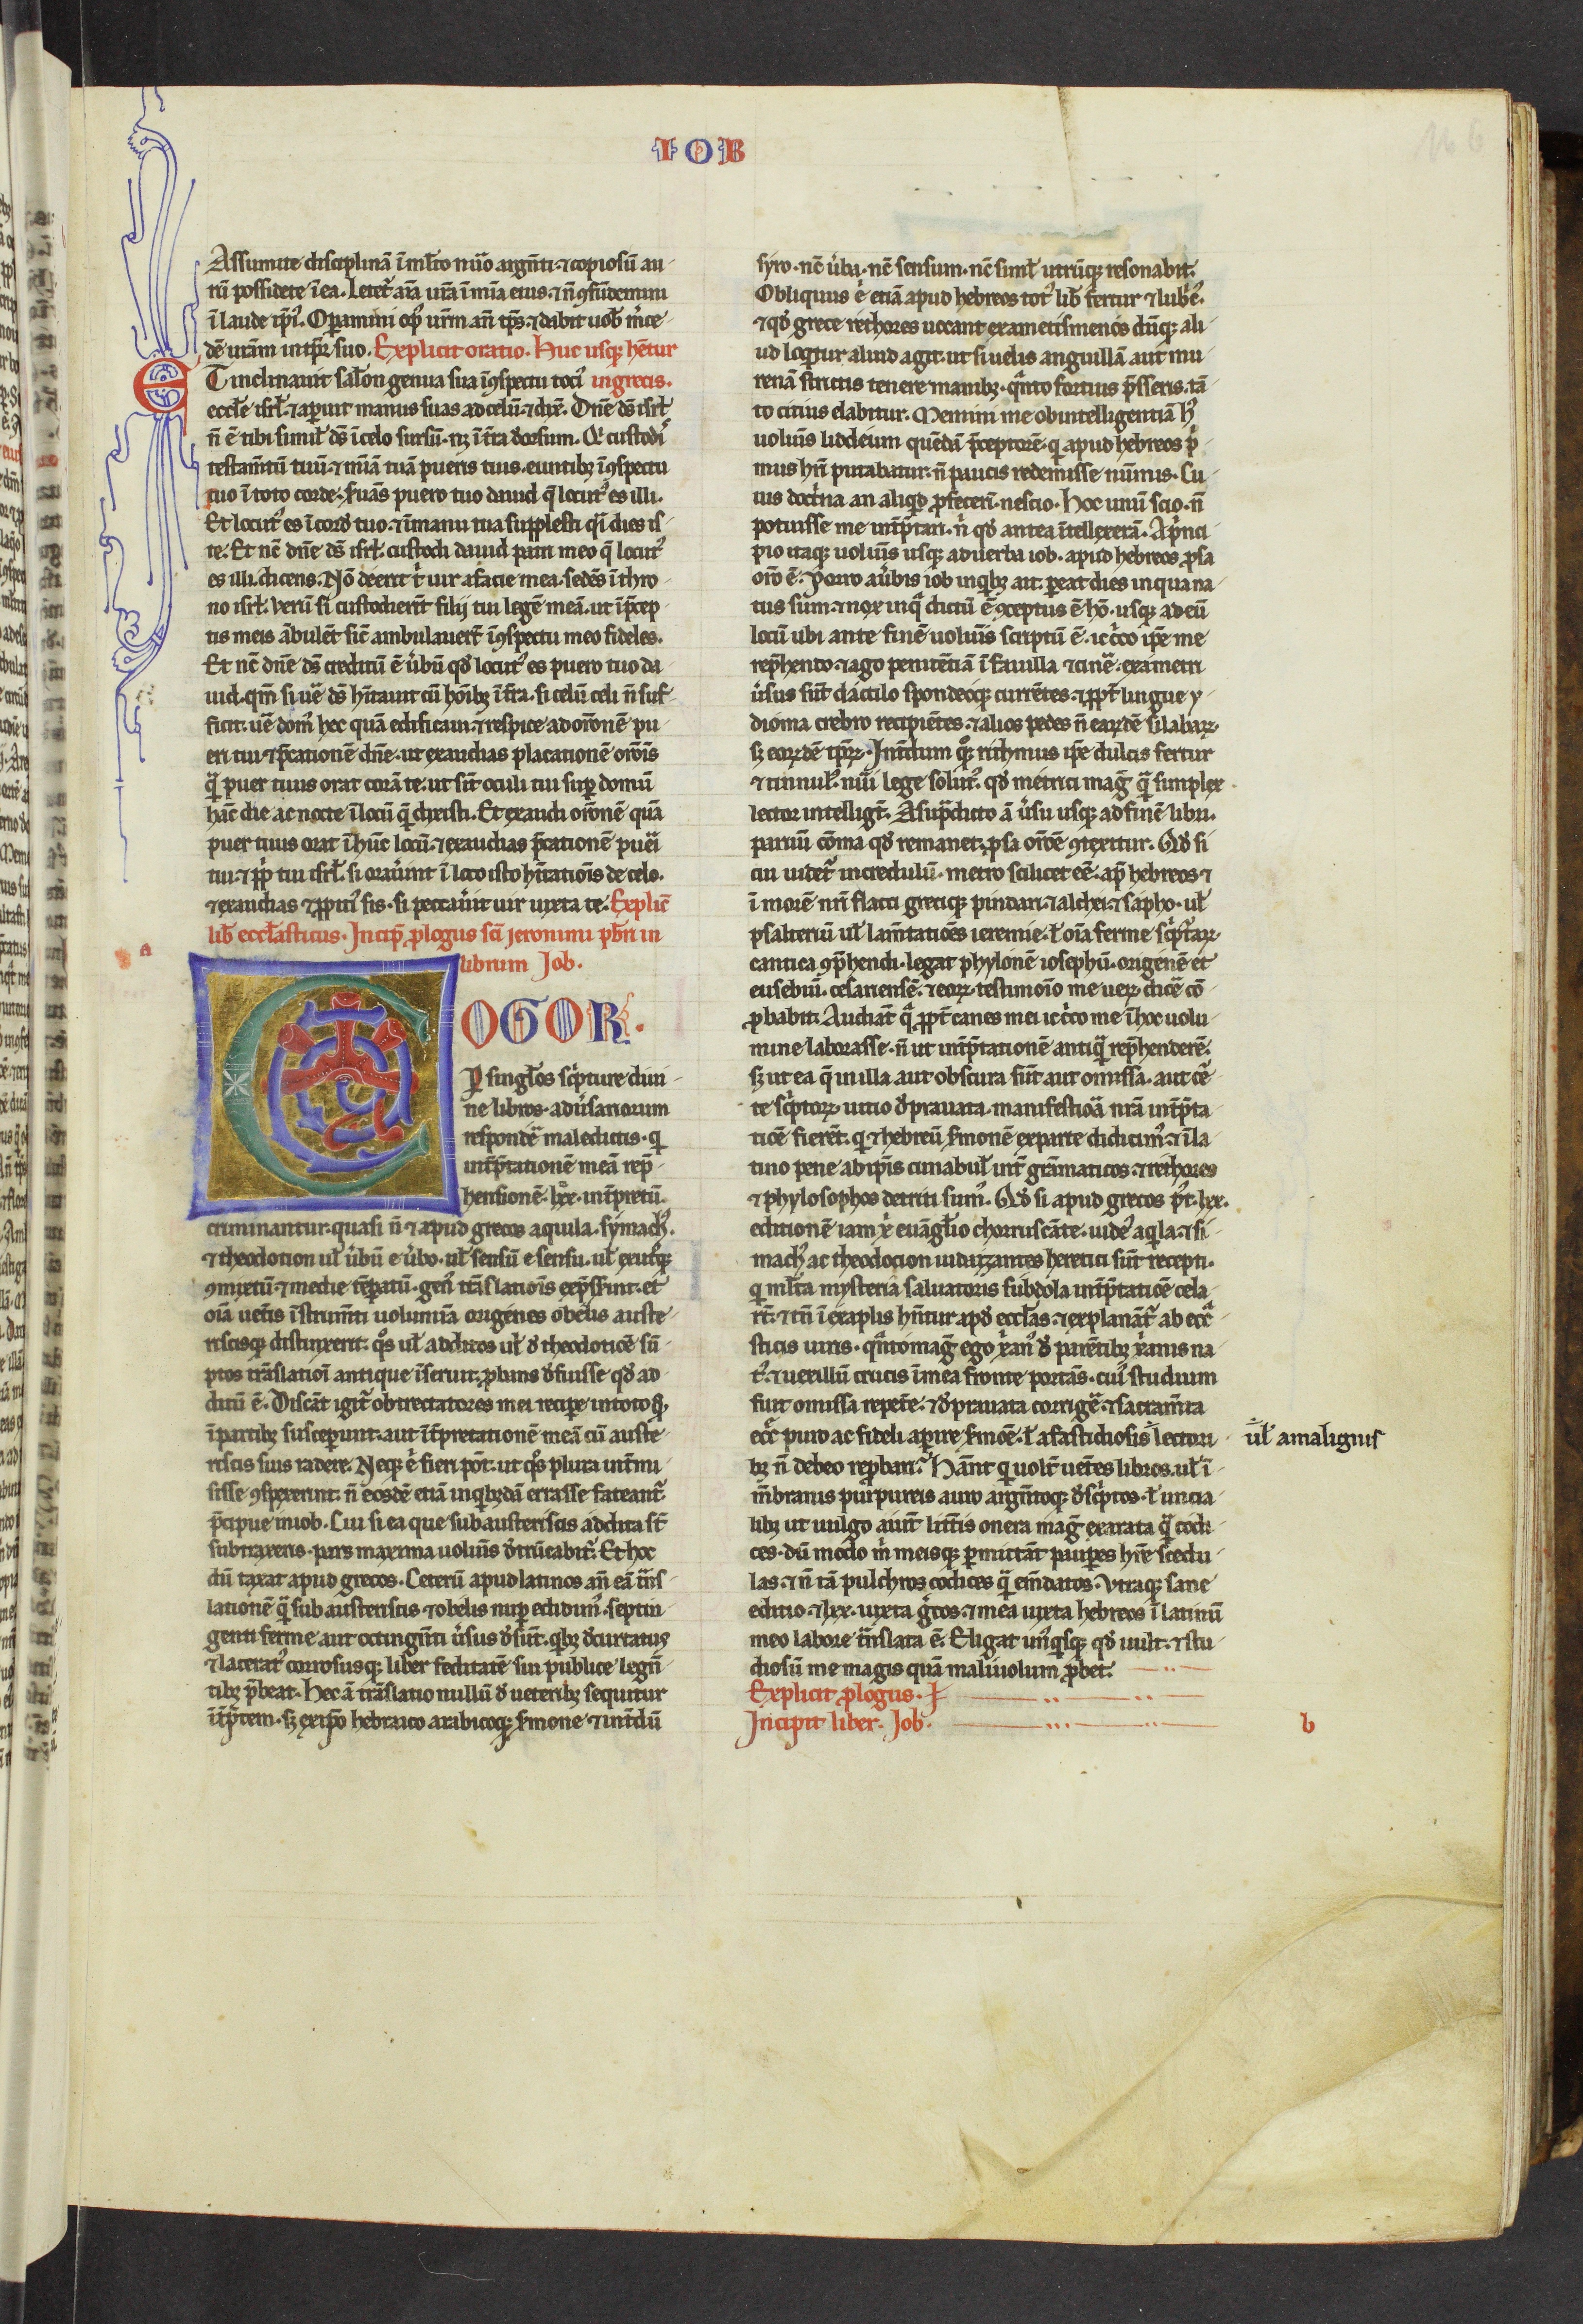 IOB
Assumite disciplinā ī ml̄to nūo argn̄ti ⁊ copiosū au-
rū possidete ī ea. Letet͛ aīa ur̄a ī mīa eius. ⁊ n̄ ꝯfūdemini
ī laude ip̄i᷒. Opamini op᷒ ur̄m an̄ tp̄s. ⁊ dabit uob̄ m̄ce-
dē ur̄am in tp̄r suo. Explicit oratio. Huc usqꝫ hn̄tur
ET inclinauit sal̄on genua sua ī ꝯspectu toci᷒ in grecis.
eccl̄e isrl̄. ⁊ aperuit manus suas ad celū. ⁊ dix̄. Dn̄e ds̄ isrl̄
n̄ ē tibi simil̄ ds̄ ī celo sursū. nꝫ ī t̄ra deorsum. Qi custodi᷒
testam̄tū tuū. ⁊ mīaʒ tuā pueris tuis. euntibꝫ ī ꝯspectu
tuo ī toto corde. s̄uas puero tuo dauid q̄ locut᷒ es illi.
Et locut᷒ es ī corde tuo. ⁊ ī manu tua supplesti q̄i dies is-
te. Et nc̄ dn̄e ds̄ isrl̄. custodi dauid patri meo q̄ locut᷒
es illi. dicens. Nō deerit t̄ uir a facie mea. sedēs ī thro-
no isrl̄. Verū si custodierīt filij tui legē meā. ut ī p̄cep-
tis meis ābulēt sic̄ ambulauer̄t ī ꝯspectu meo fideles.
Et nc̄ dn̄e ds̄ creditū ē ūbū qd̄ locut᷒ es puero tuo da-
uid. qm̄ si ūe ds̄ hītauit cū hoībꝫ ī t̄ra. si celū celi n̄ suf-
ficit. ūe dom᷒ hec quā edificaui. ⁊ respice ad orōnē pu-
eri tui ⁊ p̄cationē dn̄e. ut exaudias placationē orōīs
q̄ puer tuus orat corā te. ut sīt oculi tui sup domū
hāc die ac nocte ī locū q̄ dixisti. Et exaudi orōnē quā
puer tuus orat ī hūc locū. ⁊ exaudias p̄cationē pueī
tui. ⁊ ppl̄i tui isrl̄. si orauīnt ī loco isto hītationis de celo.
⁊ exaudias ⁊ ꝓpiti᷒ sis. si peccaūit uir iuxta te. Explic̄
lib̄ eccl̄asticus. Incip̄ ꝓlogus sc̄i jeronimi pb̄ri in
librum Job.
a
COGOR.
P singl̄os sc̄pture diui-
ne libros. adūsariorum
respondē maledictis. q̄
int̄p̄tationē meā rep̄-
hensionē. lxx. int̄pretū.
criminantur. quasi n̄ ⁊ apud grecos aquila. symach᷒.
⁊ theodotion ul̄ ūbū e ūbo. ul̄ sensū e sensu. ul̄ ex utqꝫ
ꝯmixtū. ⁊ medie tēperatū. gen᷒ trāslationis exp̄sserint. et
oīa uetis īstrum̄ti uolumīa origenes obelis auste-
riscisqꝫ distinxerit. q̄s ul̄ additos ul̄ de theodotiōe sū-
ptos trāslationi antique īseruit. ꝓbans defuisse qd̄ ad-
ditū ē. Discāt igit͛ obtrectatores mei recipe in toto qd̄
ī partibꝫ susceperunt. aut īt̄pretationē meā cū auste-
riscis suis radere. Neqꝫ ē fieri pōt. ut q̄s plura int̄mi-
sisse ꝯspexerint. n̄ eosdē etiā in qibꝫdā errasse fateant͛.
p̄cipue in iob. Cui si ea que sub austeriscis addita st̄
subtraxeris. pars maxima uolum̄is detrūcabit͛. Et hoc
dū taxat apud grecos. Ceterū apud latinos an̄ eā trā̄s-
lationē q̄ sub austeriscis ⁊ obelis nup edidim᷒. septin-
genti ferme aut octingn̄ti ūsus desūt. qibꝫ decurtatus
⁊ lacerat᷒ corrosusqꝫ liber feditatē sui publice legn̄-
tibꝫ p̄beat. Hec ā trāslatio nullū de ueteribꝫ sequitur
īt̄p̄tem. sꝫ ex ip̄o hebraico arabicoqꝫ s̄mone ⁊ int̄dū
syro. nc̄ ūba. nc̄ sensum. nc̄ simul̄ utrūqꝫ resonabit.
Obliquus ē etiā apud hebreos tot᷒ lib̄ fertur ⁊ lubric᷒.
⁊ qd̄ grece rethores uocant exametismenos dūqꝫ ali-
ud loq̄tur aliud agit. ut si uelis anguillā aut mu-
renā strictis tenere manibꝫ. q̄nto fortius p̄sseris. tā-
to citius elabitur. Memini me ob intelligentiā h᷒
uolum̄is liddeum quēdā p̄ceptorē. qi apud hebreos p̄-
mus hr̄i putabatur. n̄ paucis redemisse nūmis. Cu-
ius doctrīna an aliqd̄ ꝓfecerī nescio. Hoc unū scio. n̄
potuisse me int̄p̄tari. n̄ qd̄ antea ītellexerā. A p̄nci-
pio itaqꝫ uolum̄is usqꝫ ad uerba iob. apud hebreos ꝓsa
orō ē. Porro a ūbis iob in qibꝫ ait. pereat dies in qua na-
tus sum. ⁊ nox in q̄ dictū ē ꝯceptus ē hō. usqꝫ ad eū
locū ubi ante finē uolum̄is scriptū ē. iccirco ip̄e me
rep̄hendo. ⁊ ago penitētiā ī fauilla ⁊ cinē. exametri
ūsus sūt dactilo spondeoqꝫ currētes. ⁊ ꝓpt̄ lingue y-
dioma crebro recipiētes. ⁊ alios pedes n̄ earūdē silabarꝝ
sꝫ eorūdē tp̄rꝝ. Int̄dum q̄ꝫ rithmus ip̄e dulcis fertur
⁊ tinnul᷒. num̄i lege solut᷒. qd̄ metrici maḡ q̄ simplex
lector intelligt̄. A sup̄dicto ā ūsu usqꝫ ad finē libri.
paruū cōma qd̄ remanet. ꝓsa orōē ꝯtexitur. Qd̄ si
cui uidet͛ incredulū. metro scilicet eē. ap̄ hebreos ⁊
ī morē nr̄i flacci greciqꝫ pindari. ⁊ alchei. ⁊ sapho. ul̄
psalteriū ul̄ lam̄tatiōēs ieremie. l̄ oīa ferme sc̄pt͛arꝝ
cantica ꝯp̄hendi. legat phylonē iosephū. origenē et
eusebiū. cesariensē. ⁊ eorꝝ testimoīo me uerꝝ dicē cō-
ꝓbabit. Audiāt q̄ ꝓpt̄ canes mei iccirco me ī hoc uolu-
mine laborasse. n̄ ut int̄p̄tationē antiq̄ rep̄henderē.
sꝫ ut ea q̄ in illa aut obscura sūt aut omissa. aut cē-
te sc̄ptorꝝ uitio deprauata. manifestiōa nr̄a int̄p̄ta-
tiōē fierēt. qi ⁊ hebreū s̄monē ex parte didicim᷒. ⁊ ī la-
tino pene ab ip̄is cunabul̄ int̄ grāmaticos. ⁊ rethores
⁊ phylosophos detriti sum᷒. Qd̄ si apud grecos p̄t. lxx.
editionē iam xp̄i euāgl̄io chorruscāte. iude᷒ aqila. ⁊ si-
mach᷒ ac theodocion iudaizantes heretici sūt recepti.
qi ml̄ta mysteria saluatoris subdola int̄p̄tatiōē cela-
rt̄. ⁊ tn̄ ī exaplis hn̄tur apd̄ eccl̄as. ⁊ explanāt͛ ab ecc̄-
sticis uiris. q̄nto maḡ ego xān᷒ de parētibꝫ xānis na-
t᷒. ⁊ uexillū crucis ī mea fronte portās. cui᷒ studium
fuit omissa repetē. ⁊ deprauata corrigē. ⁊ sacram̄ta
ecc̄ puro ac fideli aperire s̄mōē. l̄ a fastidiosis lectori-
ul̄ a malignis
bꝫ n̄ debeo reprobari. Hāt qi uolt̄ uet̄es libros. ul̄ ī
m̄branis purpureis auro argn̄toqꝫ desc̄ptos. l̄ uncia-
libꝫ ut uulgo aiūt litt̄is onera maḡ exarata q̄ codi-
ces. dū modo m̄ meisqꝫ permittāt pauperes hr̄e scedu-
las. ⁊ n̄ tā pulchros codices q̄ em̄datos. Vtraqꝫ sane
editio. ⁊ lxx. iuxta gr̄cos. ⁊ mea iuxta hebreos ī latinū
meo labore trā̄slata ē. Eligat un᷒qisqꝫ qd̄ uult. ⁊ stu-
diosū me magis quā maliuolum ꝓbet.
Explicit ꝓlogus.
Incipit liber. Job.
b